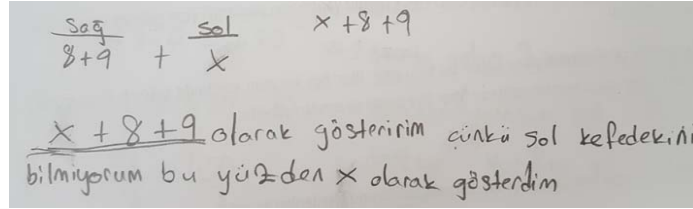 sağ sol x+8+9
8+9 + x
x + 8 +9 olarak gösteririm çünkü sol kefedekini
bilmiyorum bu yüzden x olarak gösterdim